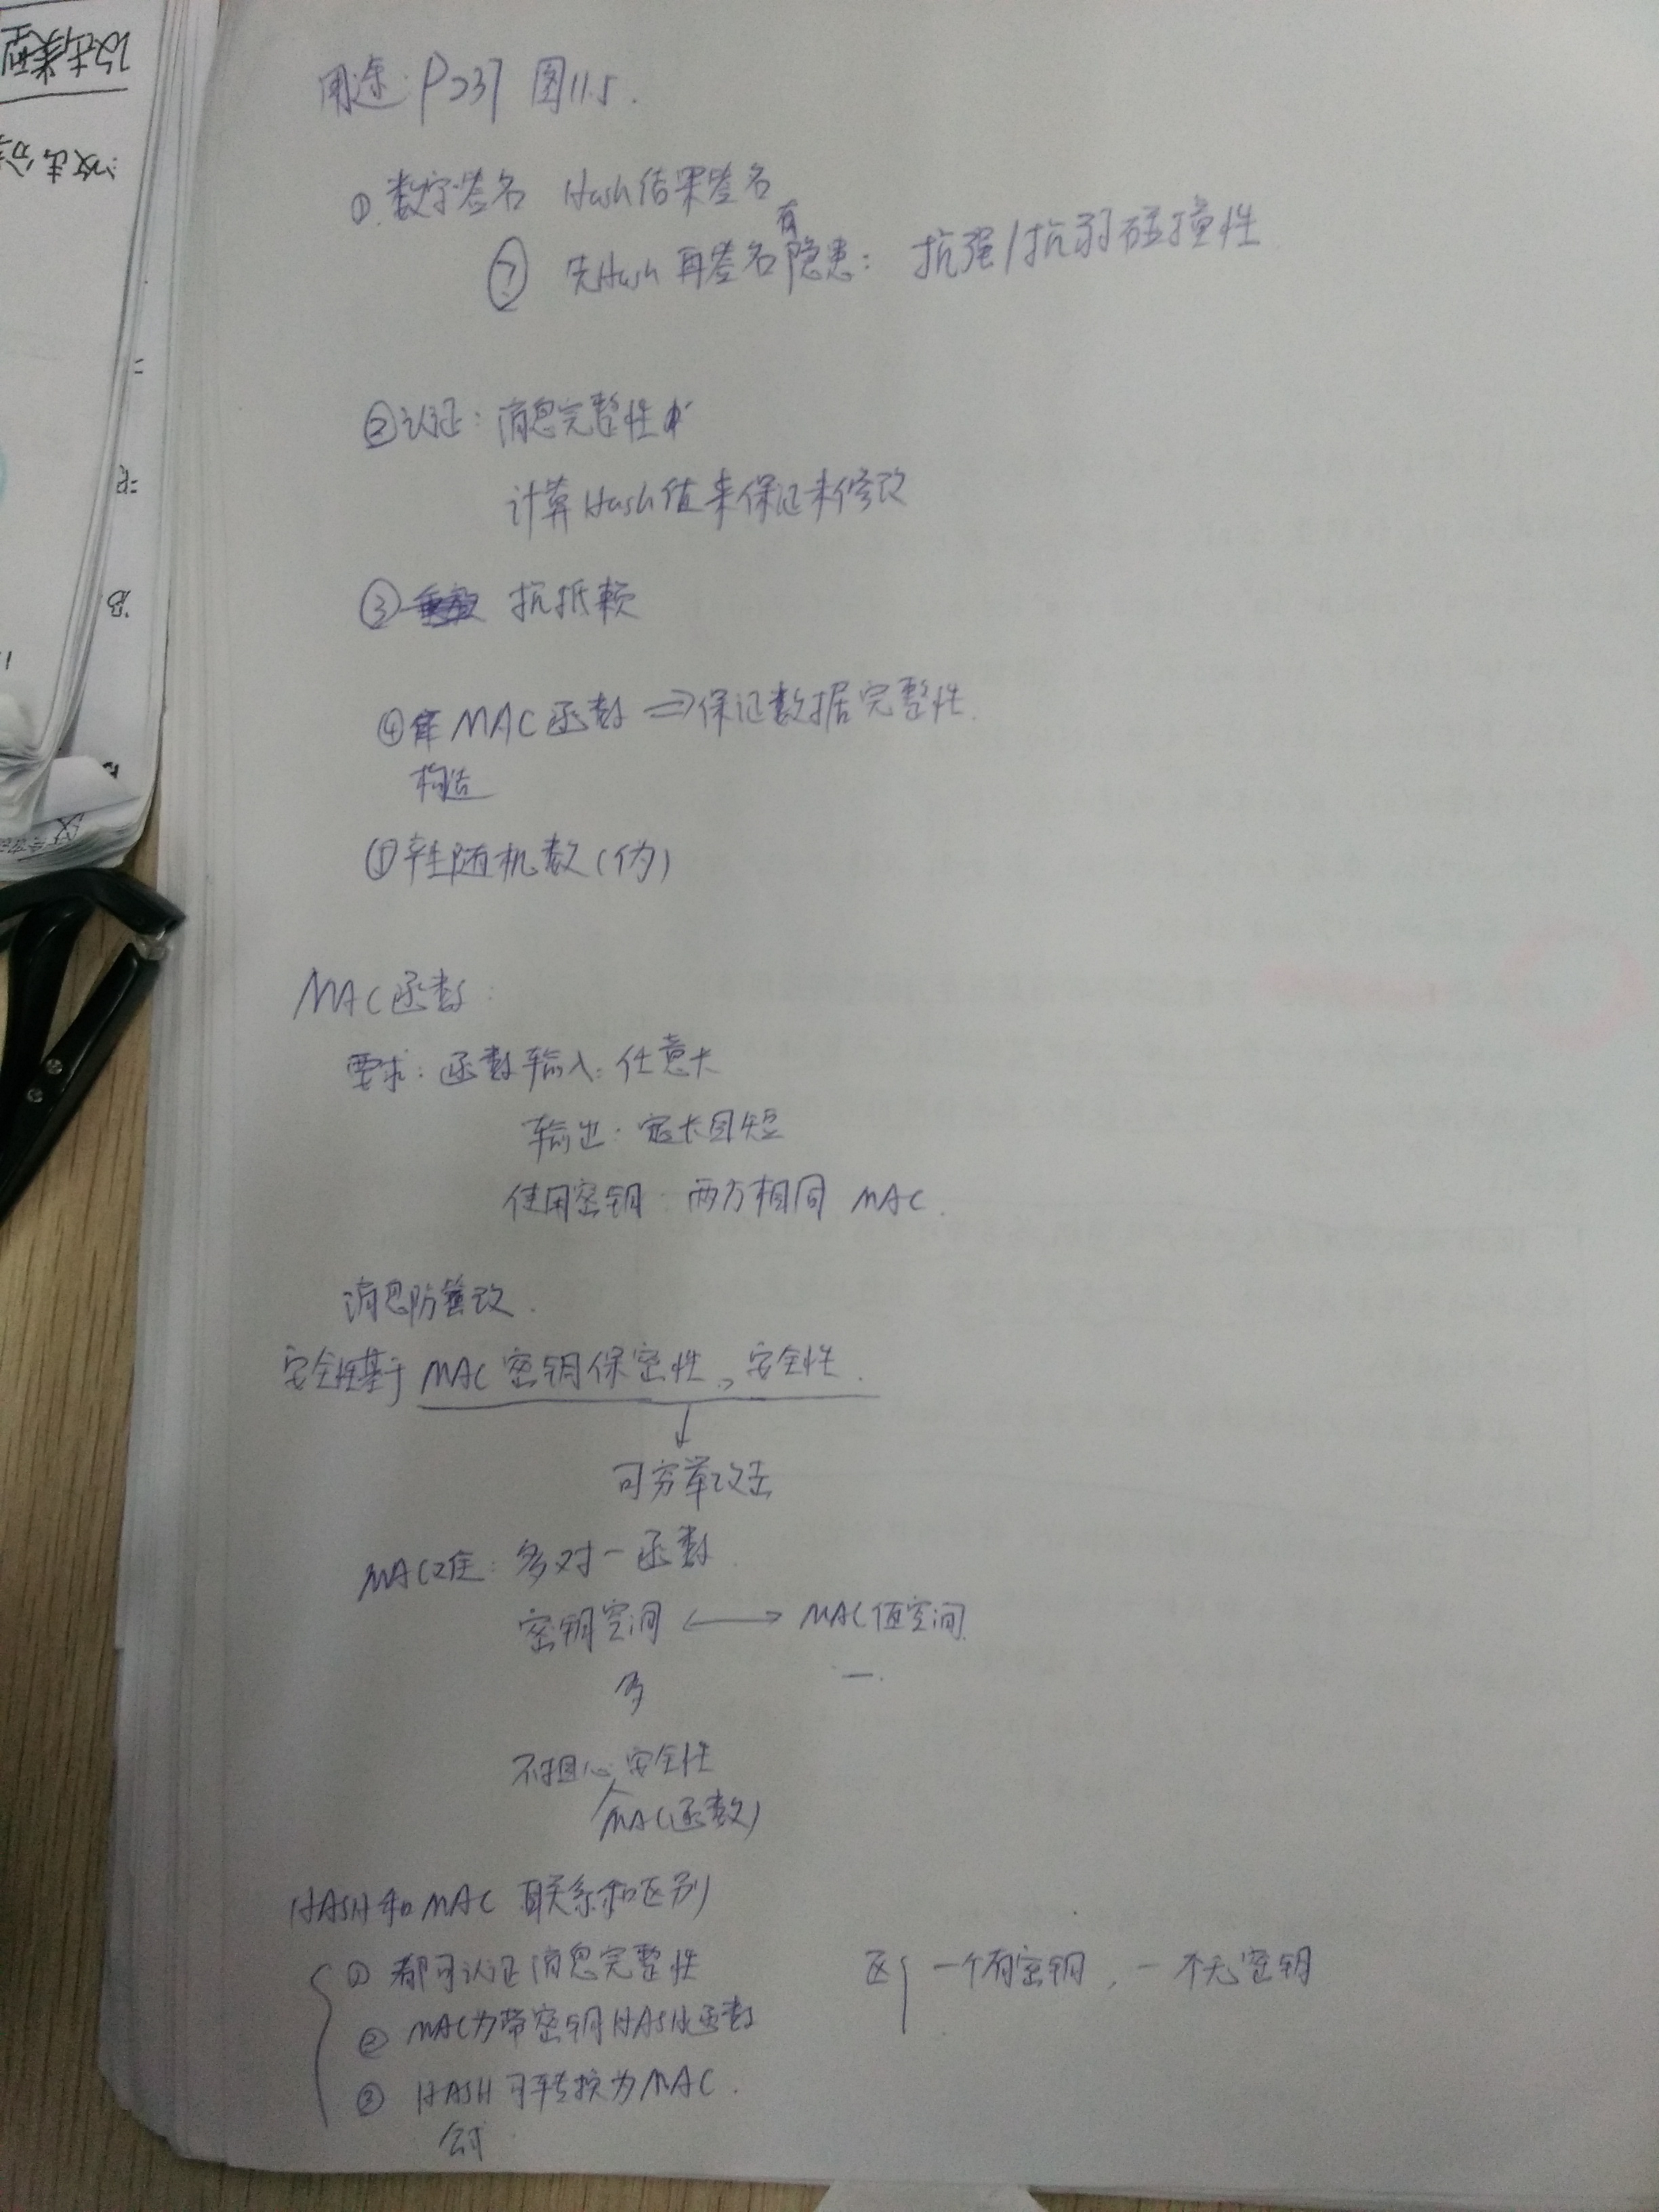 用途: P237 图11.5.
①. 数字签名 Hash结果签名
⑦ 先Hash再签名有隐患: 抗强/抗弱碰撞性
② 认证: 消息完整性
计算Hash值来保证未修改
③ 抗抵赖
④ MAC函数 ⇒ 保证数据完整性.
构造
⑤ 产生随机数(伪)
MAC函数:
要求: 函数输入: 任意长
输出: 定长且短
使用密钥: 两方相同 MAC.
消息防篡改.
安全性基于 MAC密钥保密性、安全性.
↓
可穷举攻击
MAC难: 多对一函数.
密钥空间 ⟷ MAC值空间.
多 一.
不担心 安全性
(MAC函数)
HASH和MAC 联系和区别
① 都可认证消息完整性 区 一个有密钥, 一个无密钥
② MAC为带密钥HASH函数
③ HASH可转换为MAC.
攻击类型